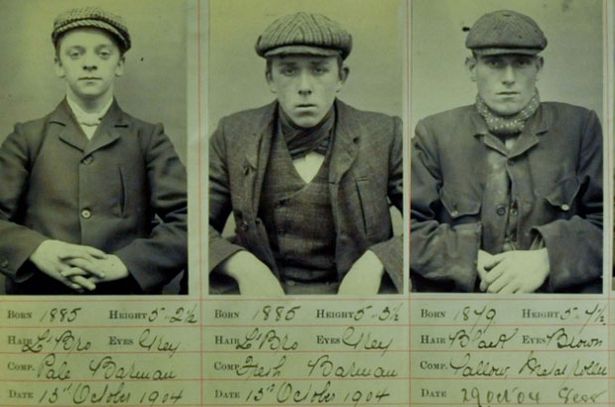 BORN 1885 HEIGHT 5-2½
HAIR L' Bro EYES Grey
COMP. Pale Barman
DATE October 1904
BORN 1885 HEIGHT 5-3½
HAIR L' Bro EYES Grey
COMP. Fresh Barman
DATE October 1904
BORN HEIGHT 5-4½
HAIR EYES Brown
COMP. Sallow Metal Roller
DATE 29 Oct 04